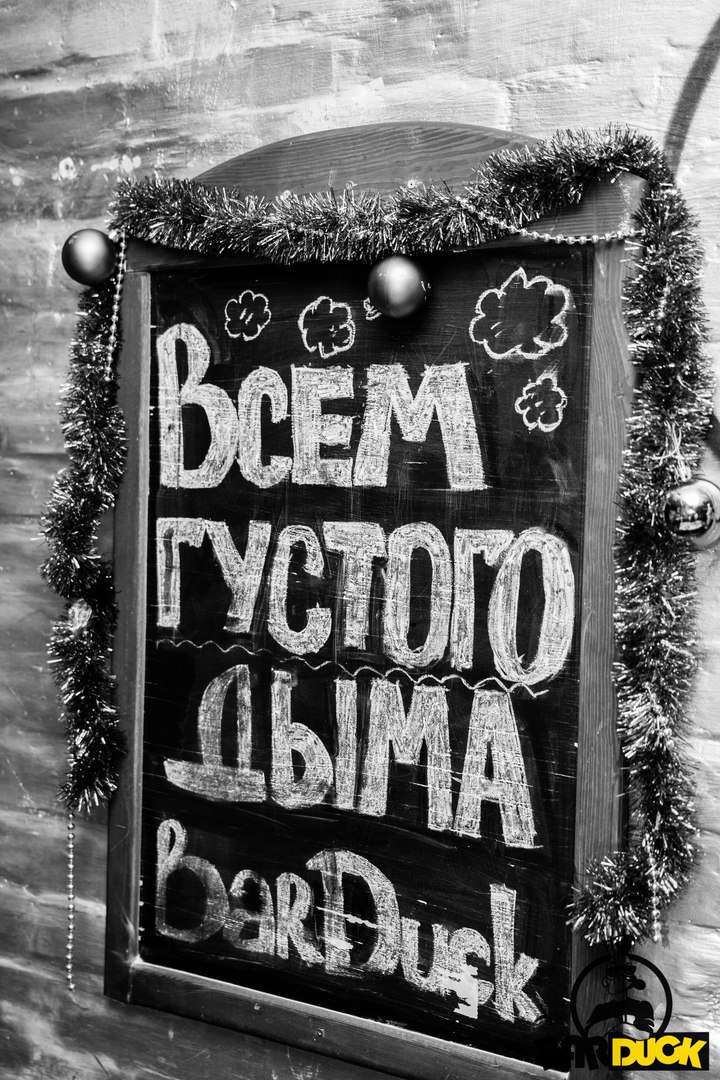 Всем
густого
дыма
BarDuck
BARDUCK